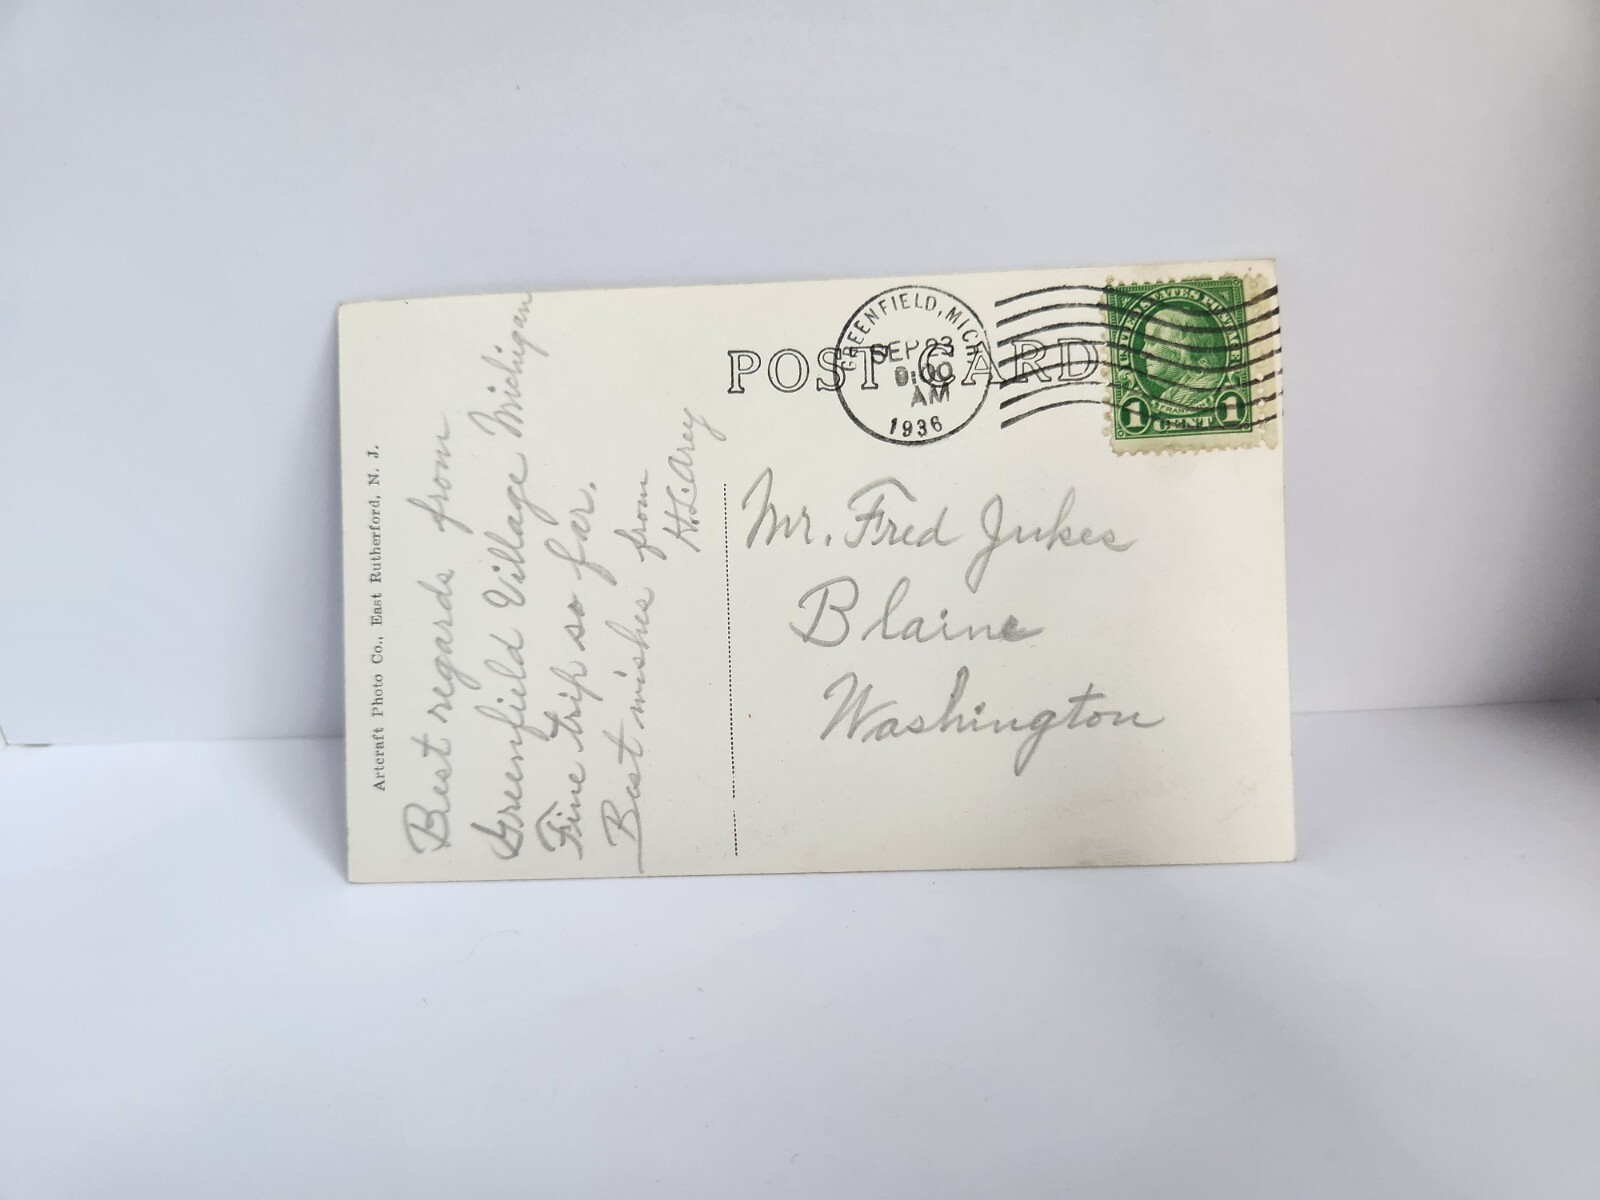 Artcraft Photo Co., East Rutherford, N. J.
Best regards from
Greenfield Village Michigan
Fine trip so far.
Best wishes from
H.L. Arey
POST CARD
GREENFIELD, MICH
SEP 23
AM
1936
UNITED STATES POSTAGE
FRANKLIN
1 CENT 1
Mr. Fred Jukes
Blaine
Washington